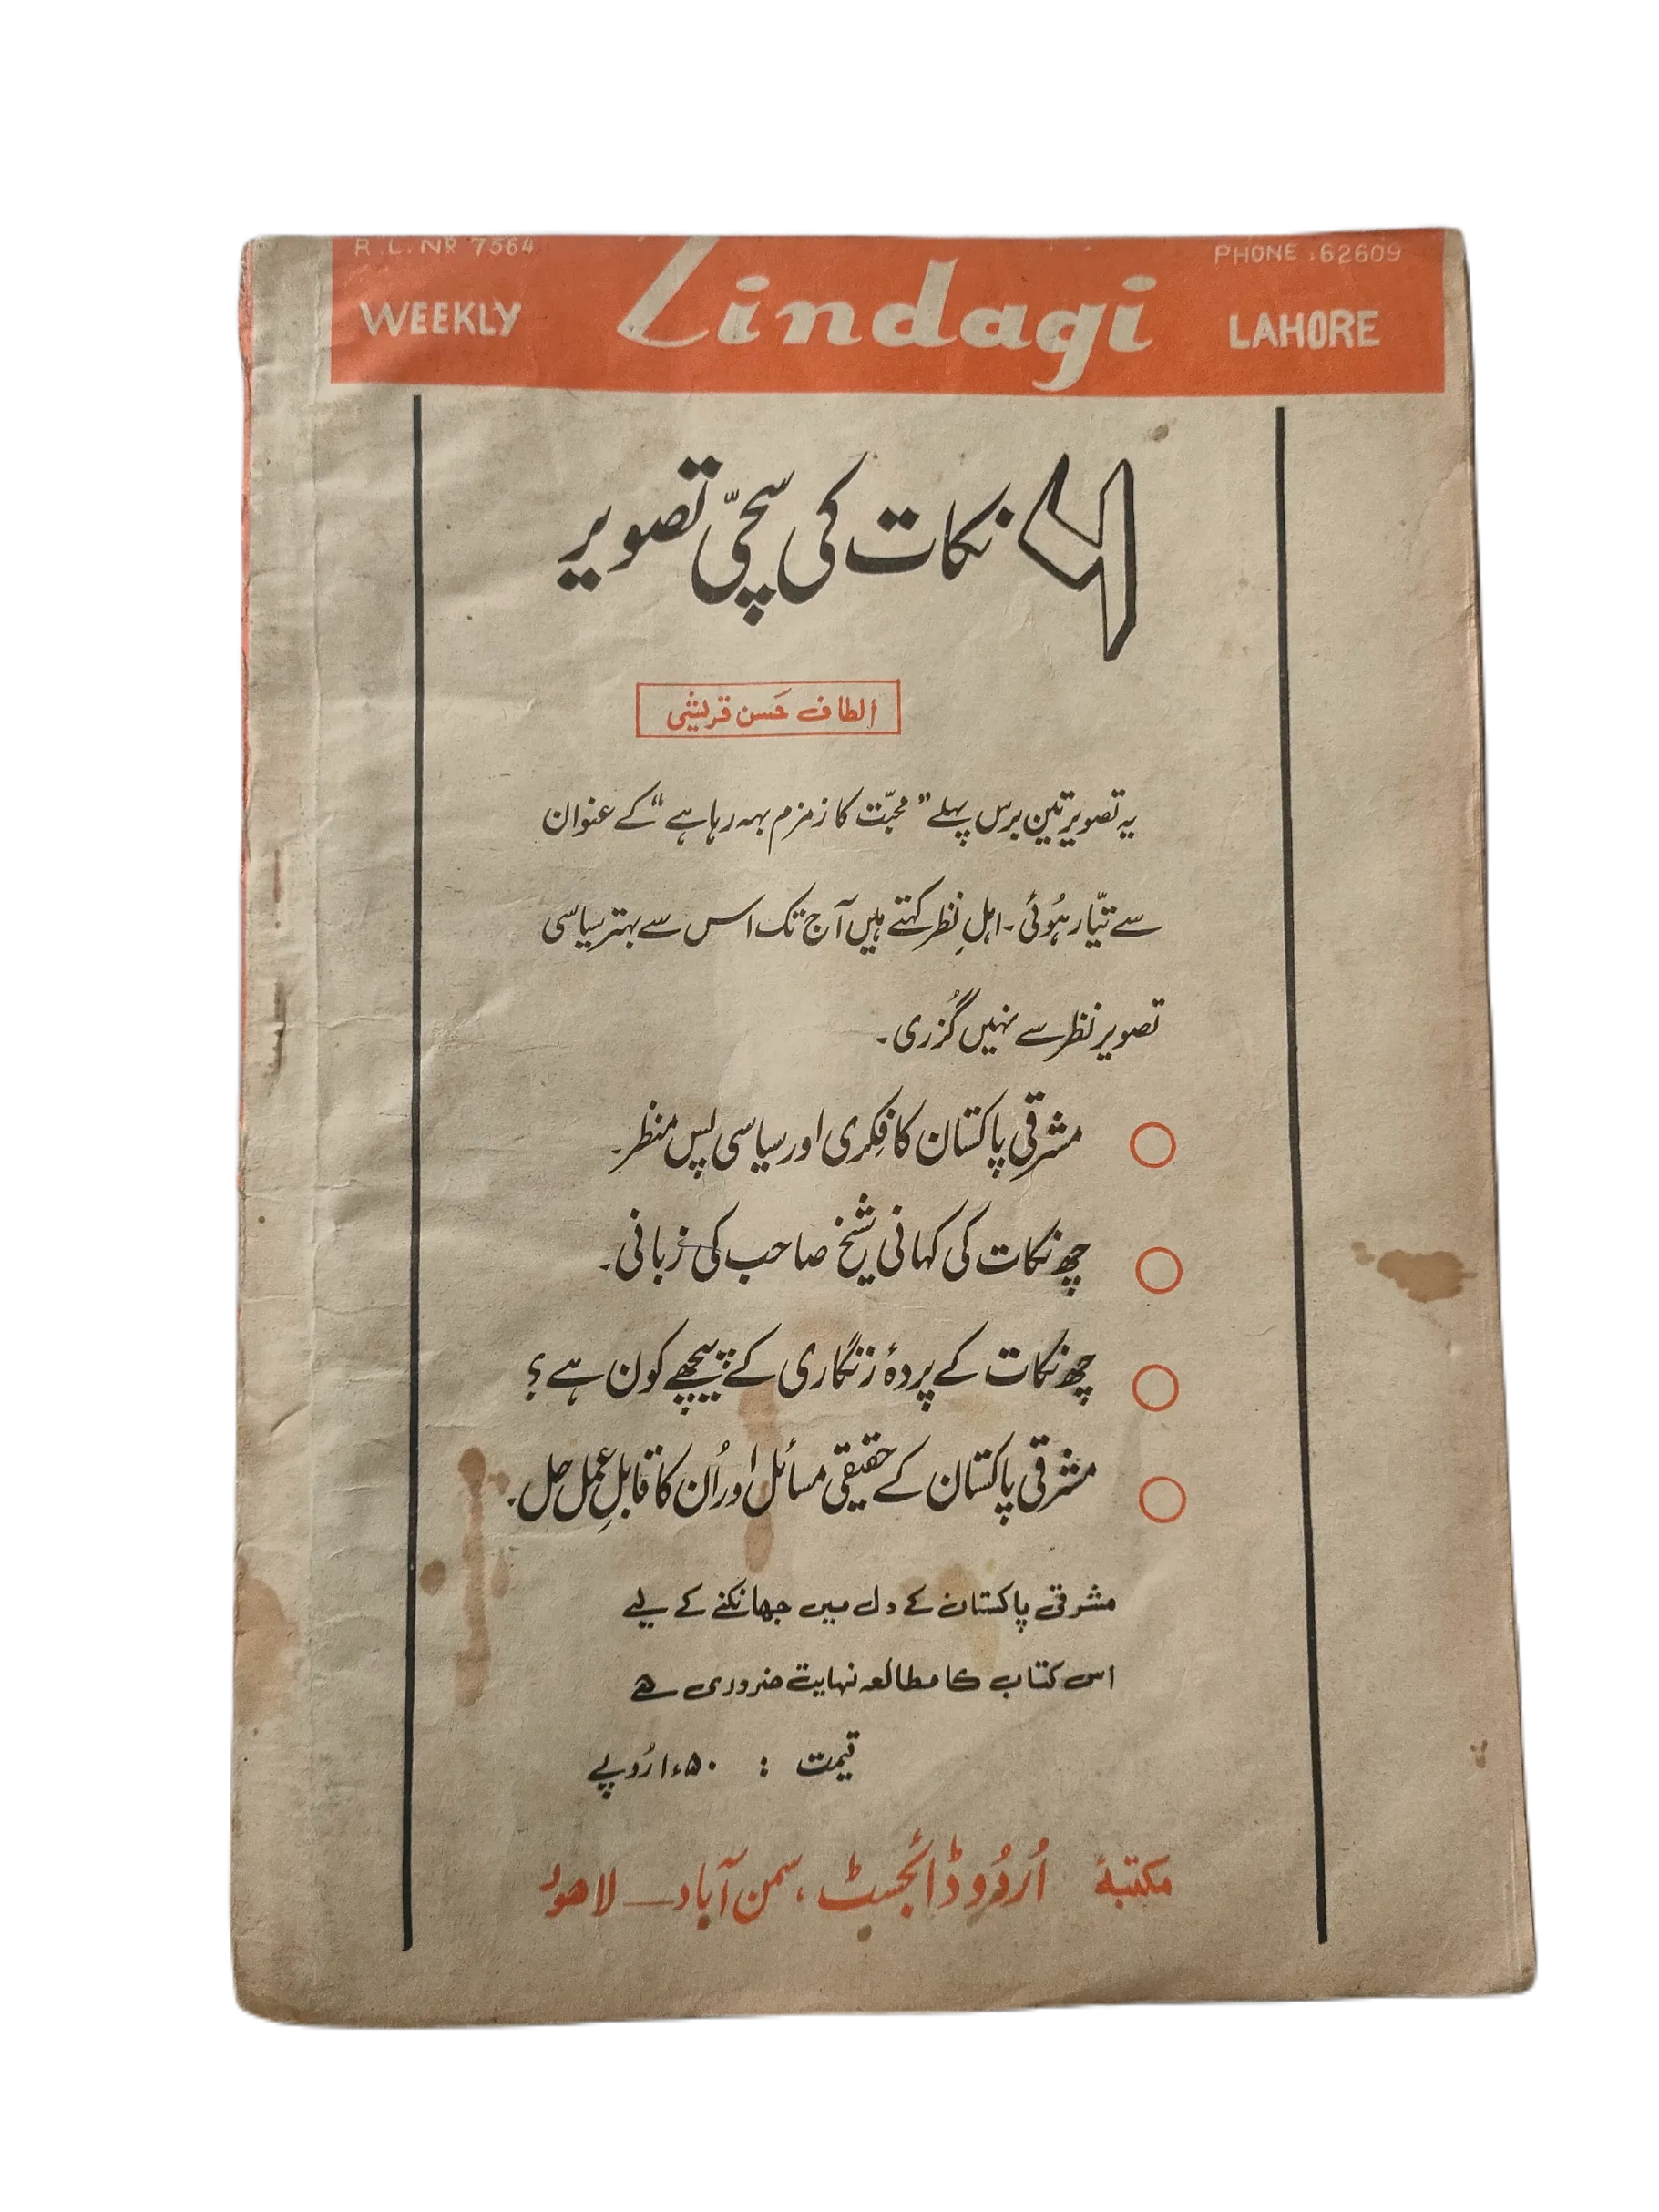 R.L. NR 7564
PHONE : 62609
WEEKLY Zindagi LAHORE
۶ نکات کی سچّی تصویر
الطاف حَسن قریشی
یہ تصویر تین برس پہلے "محبّت کا زمزم بہہ رہا ہے" کے عنوان
سے تیّار ہُوئی۔ اہلِ نظر کہتے ہیں آج تک اس سے بہتر سیاسی
تصویر نظر سے نہیں گُزری۔
مشرقی پاکستان کا فِکری اور سیاسی پس منظر۔
چھ نکات کی کہانی شیخ صاحب کی زبانی۔
چھ نکات کے پردۂ زنگاری کے پیچھے کون ہے؟
مشرقی پاکستان کے حقیقی مسائل اور اُن کا قابلِ عمل حل۔
مشرقی پاکستان کے دل میں جھانکنے کے لیے
اس کتاب کا مطالعہ نہایت ضروری ہے
قیمت : ۱٫۵۰ رُوپے
مکتبۂ اُردُو ڈائجسٹ، سمن آباد — لاھور